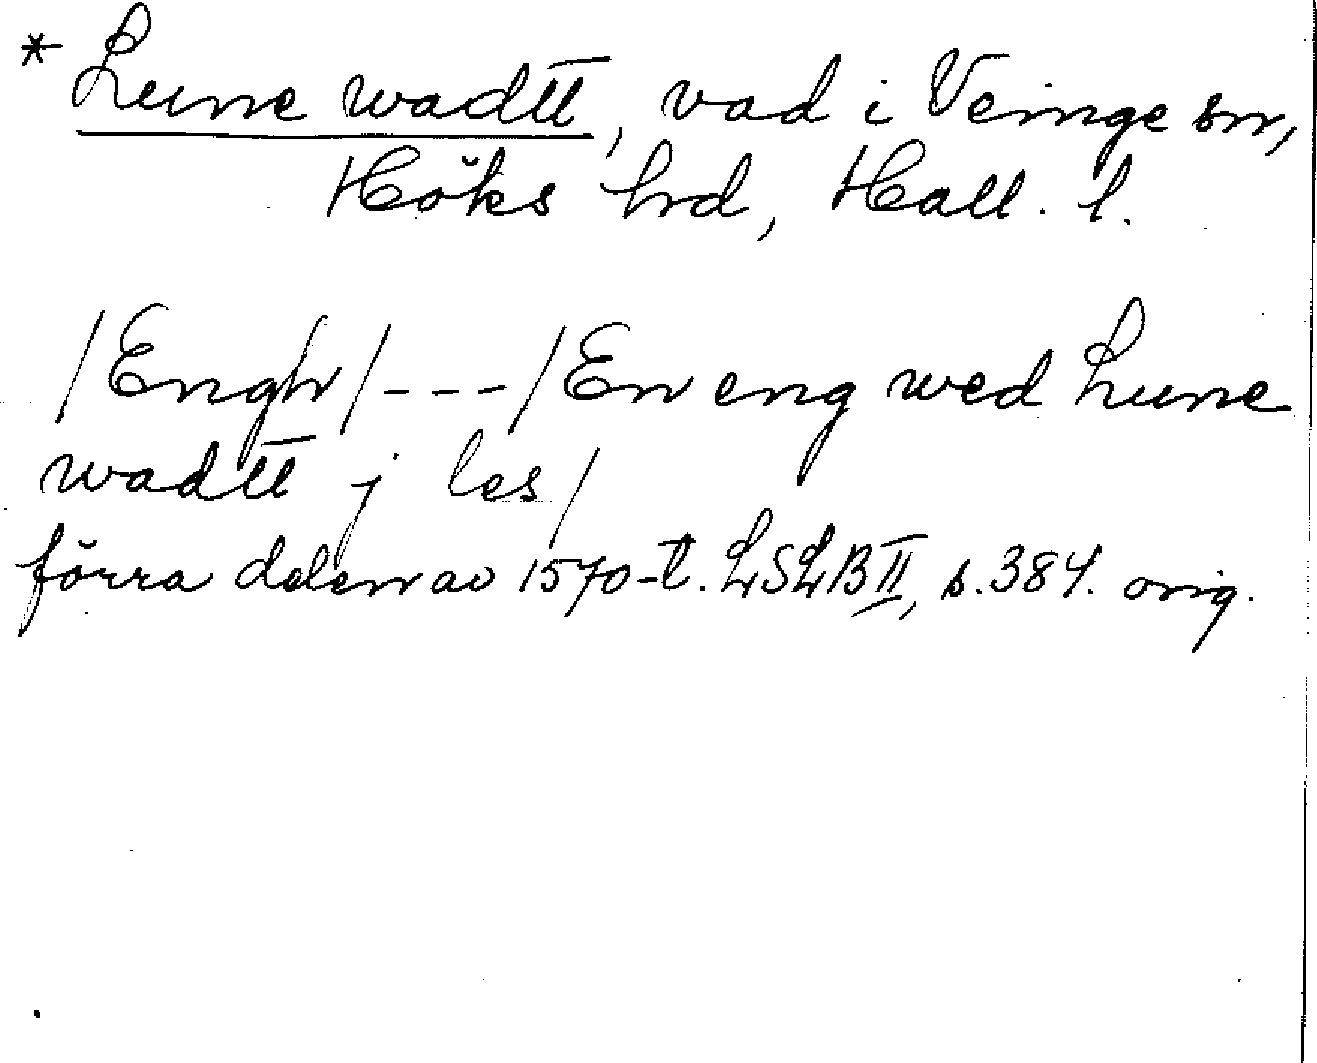 * Lune wadtt, vad i Veinge sn,
Höks hrd, Hall. l.
/Engh/---/En eng wed Lune
wadtt j les/
förra delen av 1570-t. LSLB II, s. 384. orig.